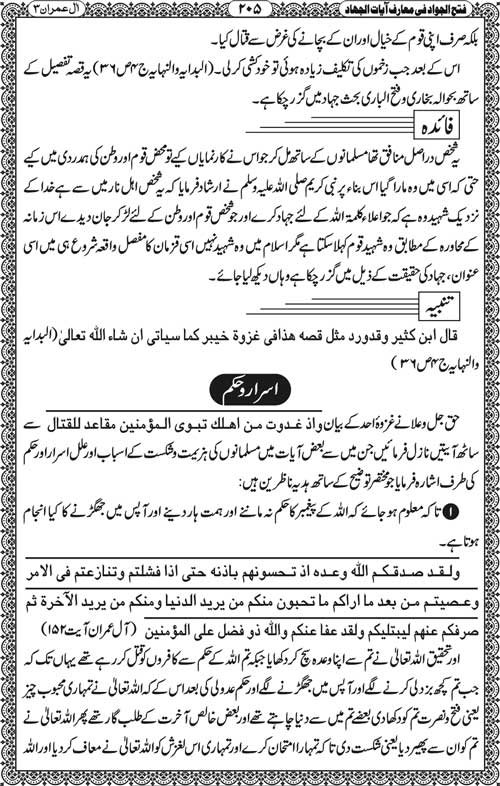 فتح الجواد فی معارف آیات الجهاد ۲۰۵ آل عمران ۳
بلکہ صرف اپنی قوم کے خیال اور ان کے بچانے کی غرض سے قتال کیا۔
اس کے بعد جب زخموں کی تکلیف زیادہ ہوئی تو خودکشی کر لی۔ (البدایہ والنہایہ ج ۴ ص ۳۶) یہ قصہ تفصیل کے
ساتھ بحوالہ بخاری و فتح الباری بحث جہاد میں گزر چکا ہے۔
فائدہ
یہ شخص دراصل منافق تھا مسلمانوں کے ساتھ مل کر جو اس نے کارنمایاں کیے تو محض قوم اور وطن کی ہمدردی میں کیے
حتی کہ اسی میں وہ مارا گیا اس بناء پر نبی کریم صلی اللہ علیہ وسلم نے ارشاد فرمایا کہ یہ شخص اہل نار میں سے ہے خدا کے
نزدیک شہید وہ ہے کہ جو اعلاء کلمۃ اللہ کے لئے جہاد کرے اور جو شخص قوم اور وطن کے لئے لڑ کر جان دیدے اس زمانہ
کے محاورہ کے مطابق وہ شہید قوم کہلا سکتا ہے مگر اسلام میں وہ شہید نہیں اسی قزمان کا مفصل واقعہ شروع ہی میں اسی
عنوان، جہاد کی حقیقت کے ذیل میں گزر چکا ہے وہاں دیکھ لیا جائے۔
تنبیہ
قال ابن کثیر وقدورد مثل قصه هذافی غزوة خیبر کما سیاتی ان شاء الله تعالیٰ (البدایہ
والنہایہ ج ۴ ص ۳۶)
اسرار و حکم
حق جل وعلا نے غزوۂ احد کے بیان واذ غدوت من اهلك تبوی المؤمنین مقاعد للقتال سے
ساٹھ آیتیں نازل فرمائیں جن میں سے بعض آیات میں مسلمانوں کی ہزیمت و شکست کے اسباب اور علل اسرار اور حکم
کی طرف اشارہ فرمایا جو مختصر توضیح کے ساتھ ہدیہ ناظرین ہیں:
۱ تاکہ معلوم ہو جائے کہ اللہ کے پیغمبر کا حکم نہ ماننے اور ہمت ہار دینے اور آپس میں جھگڑنے کا کیا انجام
ہوتا ہے۔
ولقد صدقکم الله وعده اذ تحسونهم باذنه حتی اذا فشلتم وتنازعتم فی الامر
وعصیتم من بعد ما اراکم ما تحبون منکم من یرید الدنیا ومنکم من یرید الآخرة ثم
صرفکم عنهم لیبتلیکم ولقد عفا عنکم والله ذو فضل علی المؤمنین (آل عمران آیت ۱۵۲)
اور تحقیق اللہ تعالیٰ نے تم سے اپنا وعدہ سچ کر دکھایا جبکہ تم اللہ کے حکم سے کافروں کو قتل کر رہے تھے یہاں تک کہ
جب تم کچھ بزدلی کرنے لگے اور آپس میں جھگڑنے لگے اور حکم عدولی کی بعد اس کے کہ اللہ تعالیٰ نے تمہاری محبوب چیز
یعنی فتح و نصرت تم کو دکھا دی بعضے تم میں سے دنیا چاہتے تھے اور بعض خالص آخرت کے طلب گار تھے پھر اللہ تعالیٰ نے
تم کو ان سے پھیر دیا یعنی شکست دی تا کہ تمہارا امتحان کرے اور تمہاری اس لغزش کو اللہ تعالیٰ نے معاف کر دیا اور اللہ